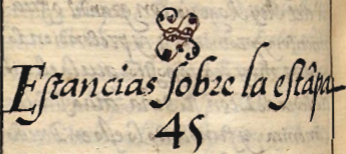 Estancias sobre la estâpa
45